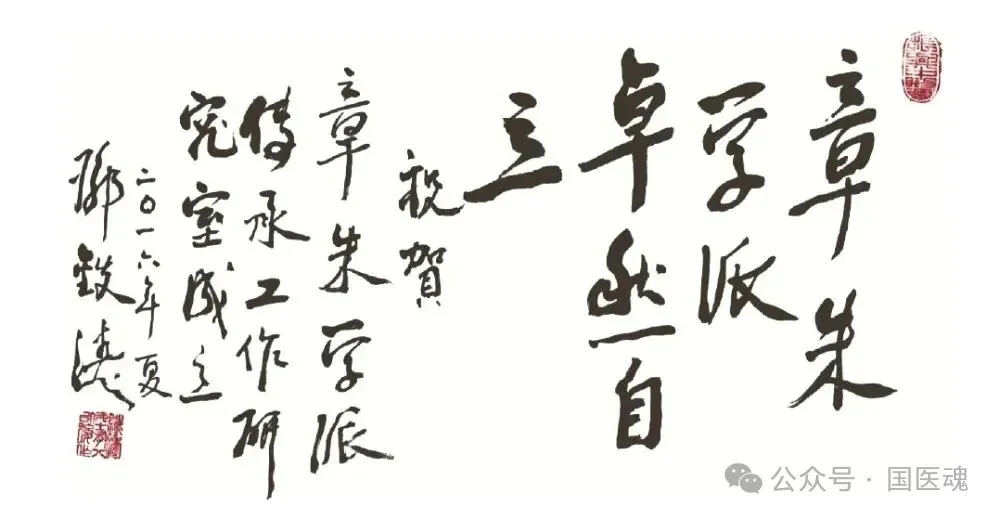 章朱
学派
卓然自
立
祝賀
章朱学派
傳承工作研
究室成立
二〇一六年夏
鄧鐵濤
公众号 · 国医魂